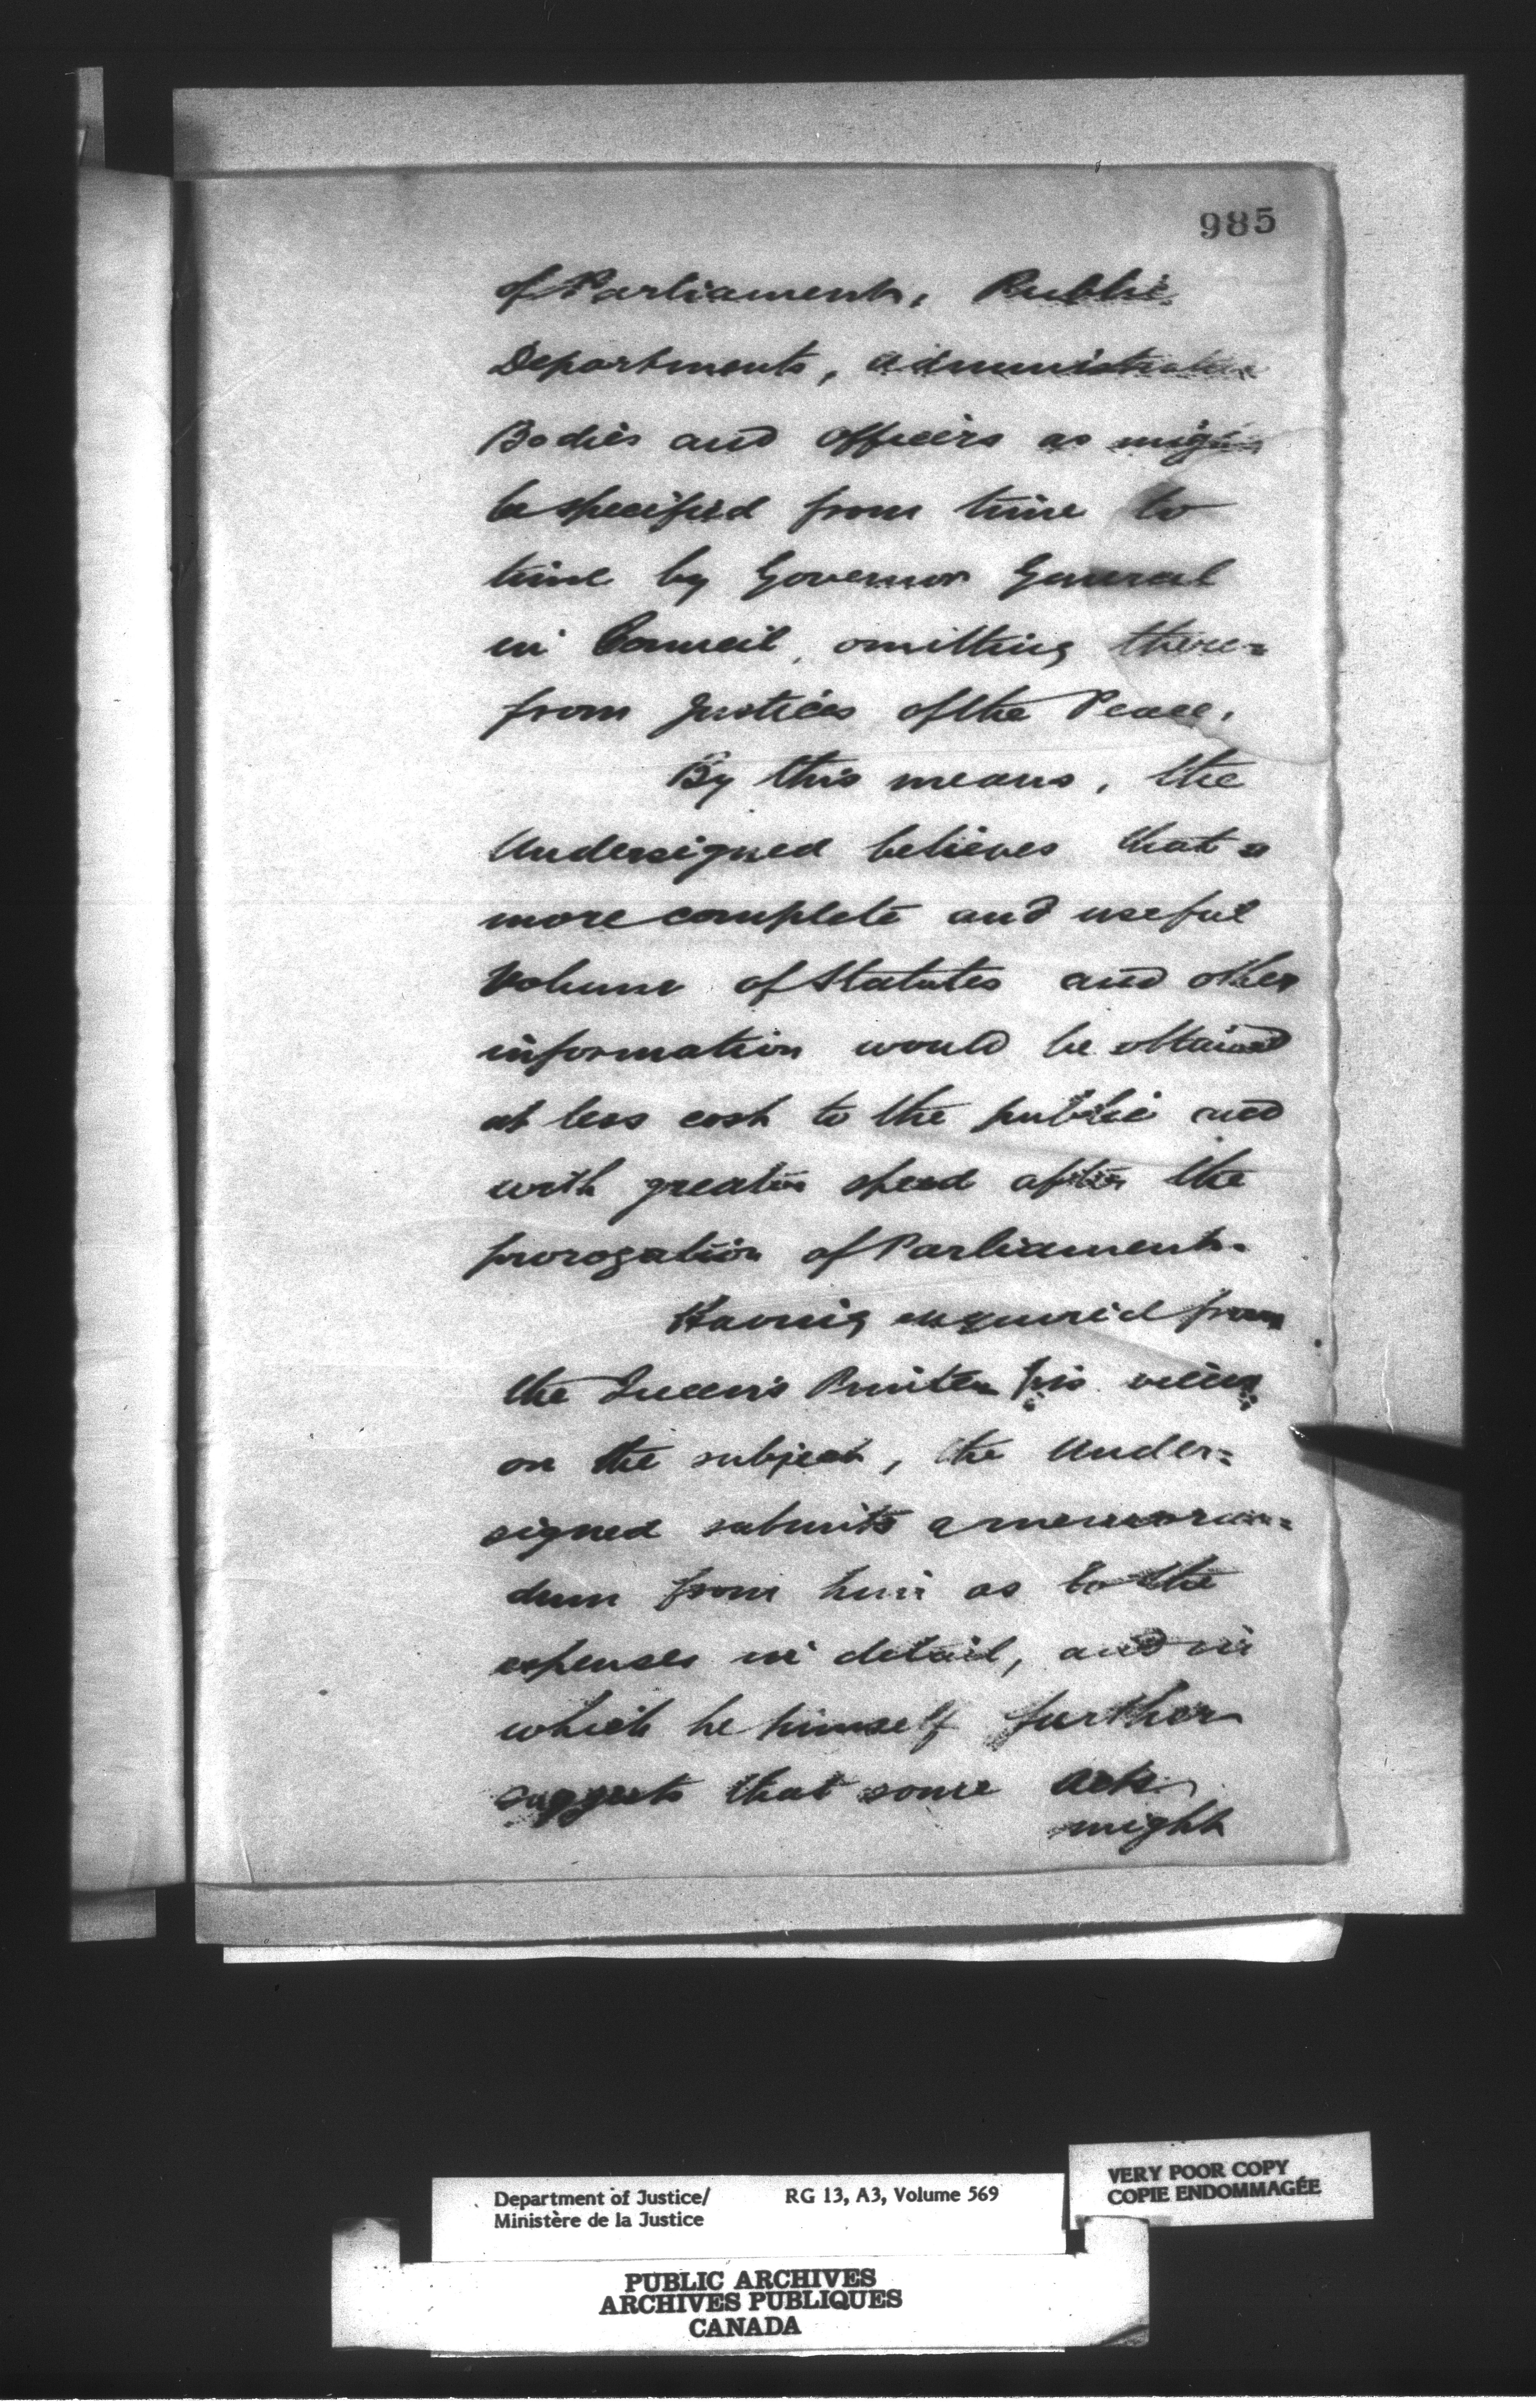 985
of Parliament, Public
Departments, administrative
Bodies and officers as might
be specified from time to
time by Governor General
in Council, omitting there=
from Justices of the Peace.
By this means, the
Undersigned believes that a
more complete and useful
volume of Statutes and other
information would be obtained
at less cost to the public and
with greater speed after the
prorogation of Parliament.
Having enquired from
the Queen's Printer his views
on the subject, the Under=
signed submits a memoran=
dum from him as to the
expenses in detail, and in
which he himself further
suggests that some Acts
might
Department of Justice/ RG 13, A3, Volume 569
Ministère de la Justice
VERY POOR COPY
COPIE ENDOMMAGÉE
PUBLIC ARCHIVES
ARCHIVES PUBLIQUES
CANADA